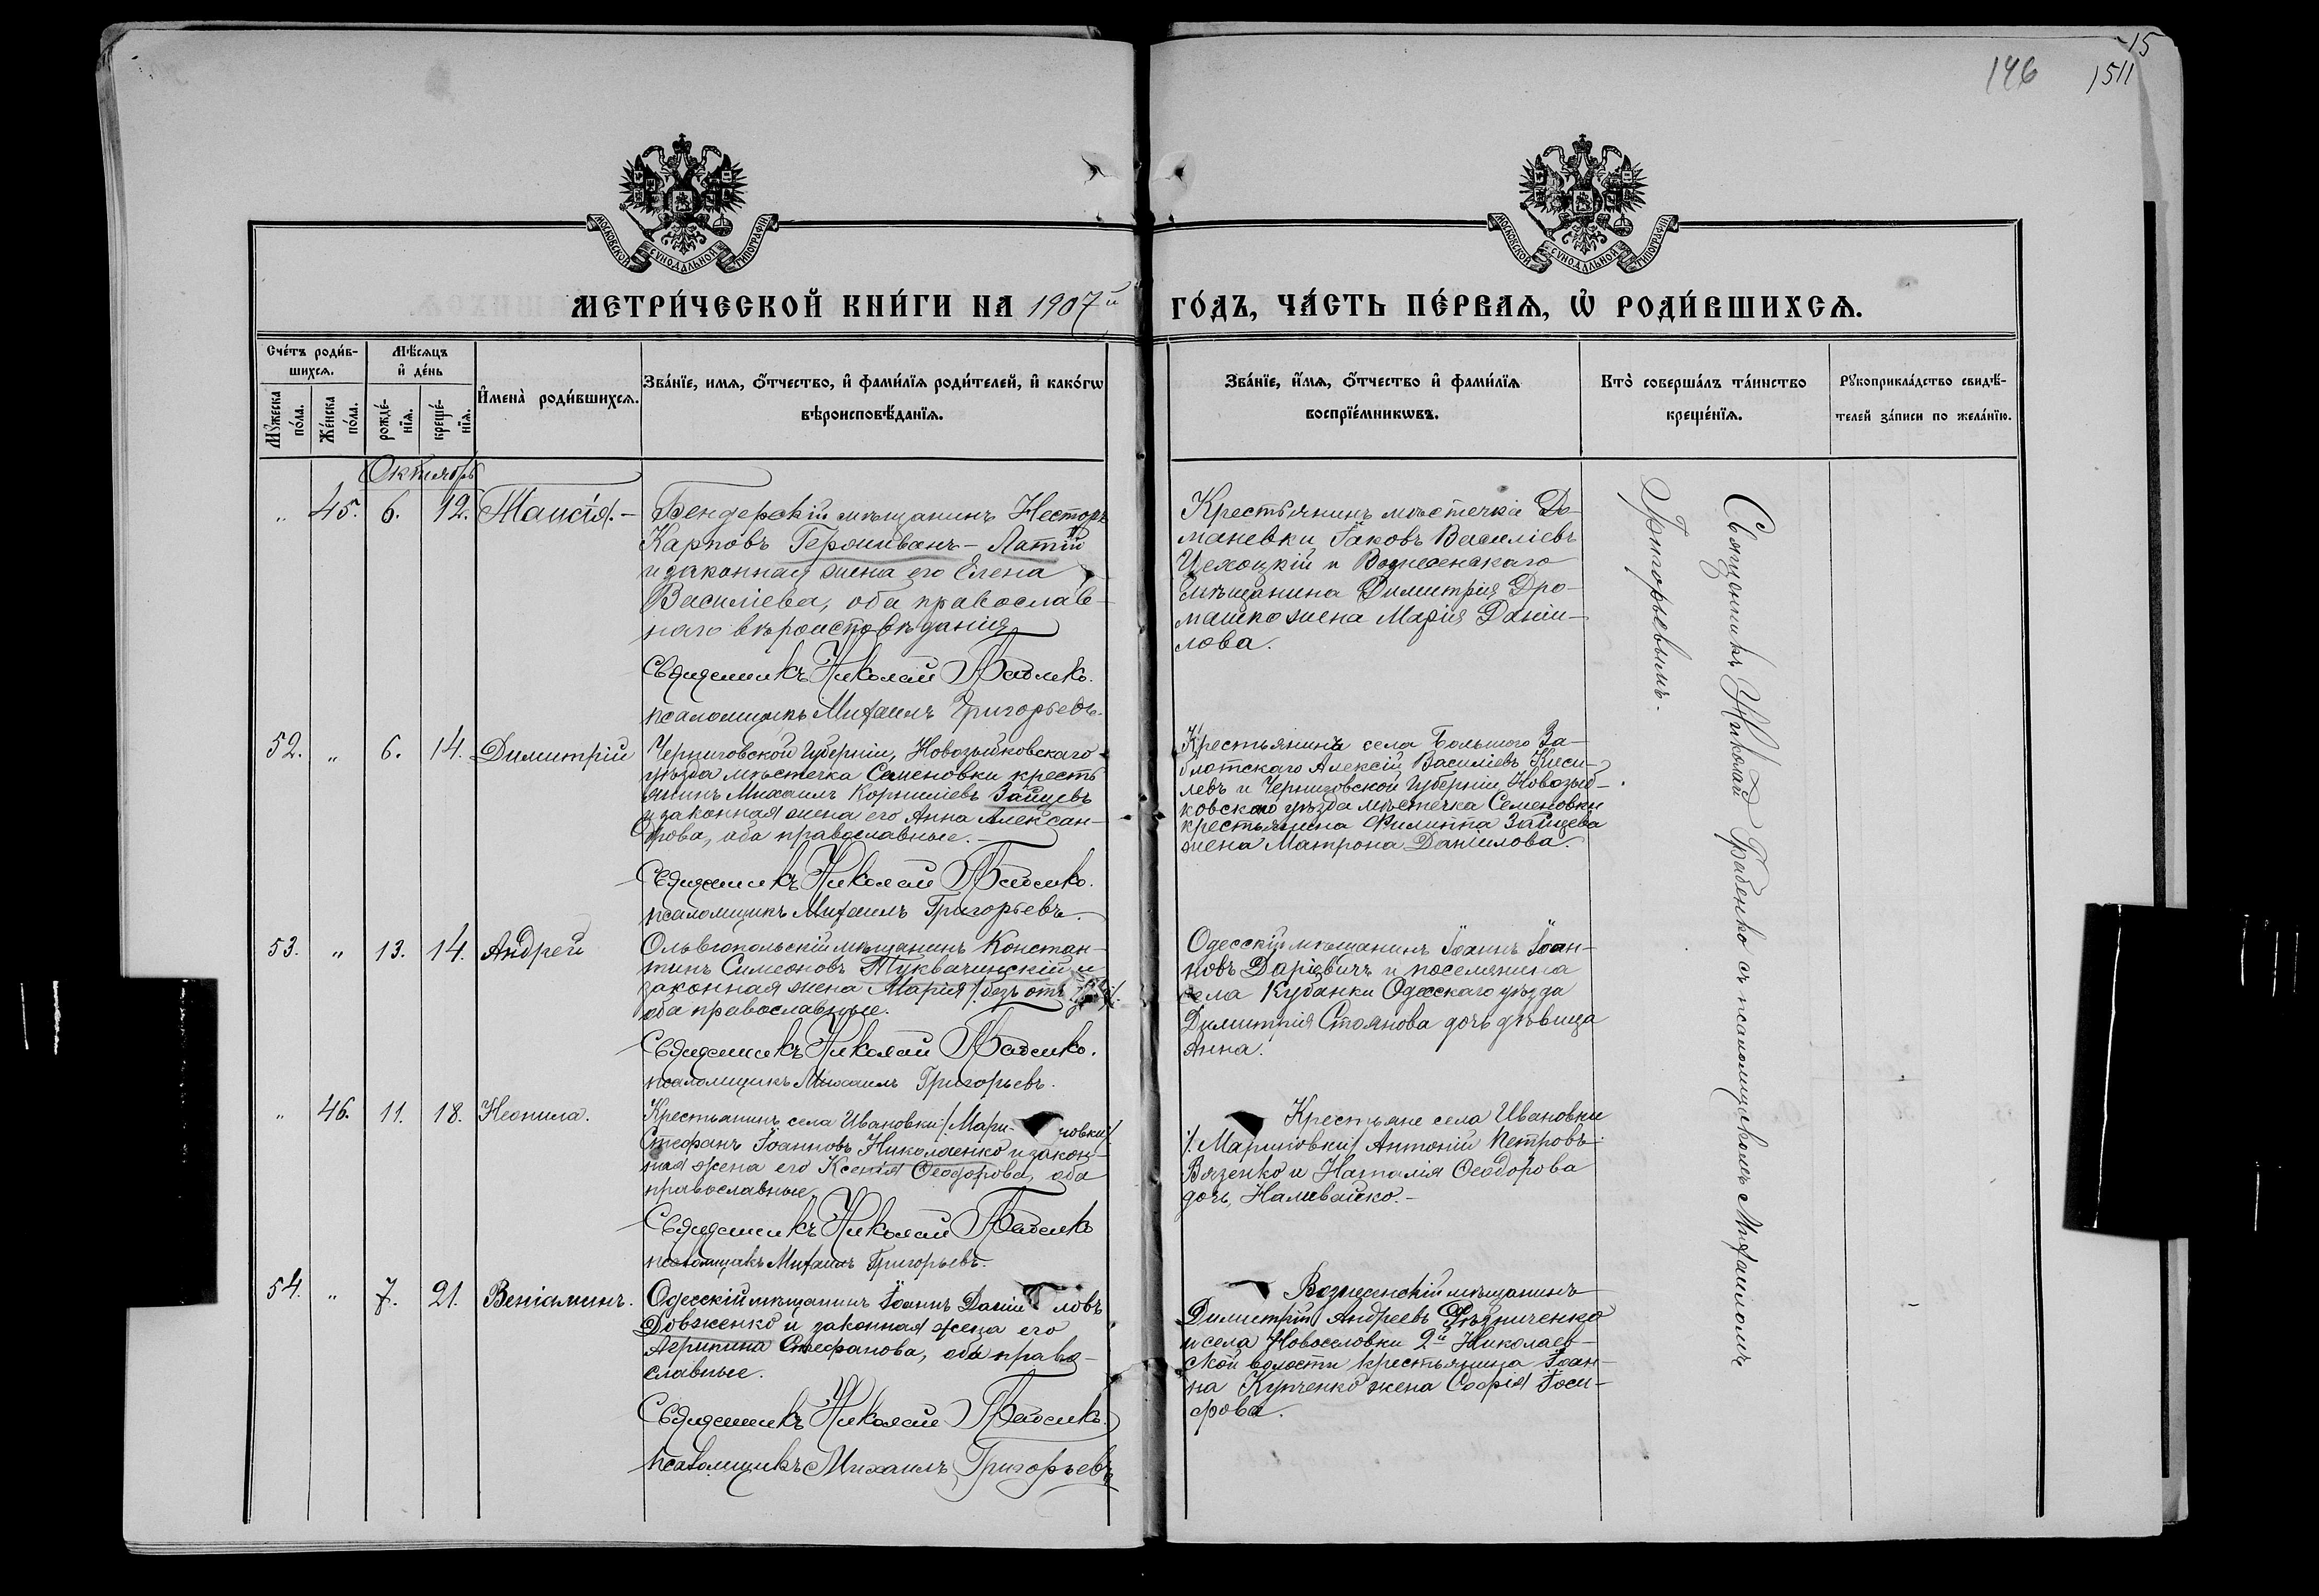 15
146 1511
МОСКОВСКОЙ СѴНОДАЛЬНОЙ ТИПОГРАФІИ
МОСКОВСКОЙ СѴНОДАЛЬНОЙ ТИПОГРАФІИ
МЕТРИ́ЧЕСКОЙ КНИ́ГИ НА 1907й ГО́ДЪ, ЧА́СТЬ ПЕ́РВАѦ, Ѡ҆ РОДИ́ВШИХСѦ.
Сче́тъ роди́в-
шихсѧ.
Мꙋ́жеска по́ла.
Же́нска по́ла.
Мѣ́сѧцъ и҆ де́нь
рожде́-нїѧ.
креще́-нїѧ.
И҆мена̀ роди́вшихсѧ.
Зва́нїе, имѧ, ѻ҆́тчество, и҆ фами́лїѧ роди́телей, и҆ како́гѡ
вѣроисповѣ́данїѧ.
Зва́нїе, и҆́мѧ, ѻ҆́тчество и҆ фами́лїѧ
воспрїе́мникѡвъ.
Кто̀ соверша́лъ та́инство
креще́нїѧ.
Рꙋкоприкла́дство свидѣ́-
телей за́писи по жела́нїю.
Октябрь
„ 45. 6. 12. Таисія. —
Бендерскій мѣщанинъ Несторъ
Карповъ
и законная жена его Елена
Василіева, оба православ-
наго вѣроисповѣданія
Священникъ Николай Грабенко.
псаломщикъ Михаилъ Григорьевъ.
Крестьянинъ мѣстечка До-
маневки Іаковъ Василіевъ
Цехоцкій и Вознесенскаго
мѣщанина Димитрія Дро-
машко жена Марія Даніи-
лова.
52. „ 6. 14. Димитрій
Черниговской губерніи, Новозыбковскаго
уѣзда мѣстечка Семеновки кресть
янинъ Михаилъ Корниліевъ Зайцевъ
и законная жена его Анна Алексан-
дрова, оба православные. —
Священникъ Николай Грабенко.
псаломщикъ Михаилъ Григорьевъ.
Крестьянинъ села Большого За-
блотскаго Алексій Василіевъ Киси-
левъ и Черниговской губерніи Новозыб-
ковскаго уѣзда мѣстечка Семеновки
крестьянина Филиппа Зайцева
жена Матрона Даніилова.
53. „ 13. 14. Андрей
Ольвіопольскій мѣщанинъ Констан-
тинъ Симеоновъ Туквачинскій и
законная жена Марія /. безъ отч.
оба православные.
Священникъ Николай Грабенко.
псаломщикъ Михаилъ Григорьевъ.
Одесскій мѣщанинъ Іоаннъ Іоан-
новъ Даріевичъ и поселянина
села Кубанки Одесскаго уѣзда
Димитрія Стоянова дочь дѣвица
Анна.
„ 46. 11. 18. Неонила.
Крестьянинъ села Ивановки /. Мари- новки /
Стефанъ Іоанновъ Николаенко и закон-
ная жена его Ксенія Ѳеодорова, оба
православные.
Священникъ Николай Грабенко
псаломщикъ Михаилъ Григорьевъ.
Крестьяне села Ивановки
/. Мариновки / Антоній Петровъ
Вязенко и Наталія Ѳеодорова
дочь Наливайко. —
54. „ 7. 21. Веніаминъ.
Одесскій мѣщанинъ Іоаннъ Даніи ловъ
Довженко и законная жена его
Агрипина Стефанова, оба право-
славные.
Священникъ Николай Грабенко.
псаломщикъ Михаилъ Григорьевъ
Вознесенскій мѣщанинъ
Димитрій Андреевъ
и села Новоселовки 2й Николаев-
ской волости крестьянина Іоан-
на Купченко жена Софія Іоси-
фова.
Священникъ Николай Грабенко съ псаломщикомъ Михаиломъ
Григорьевымъ.